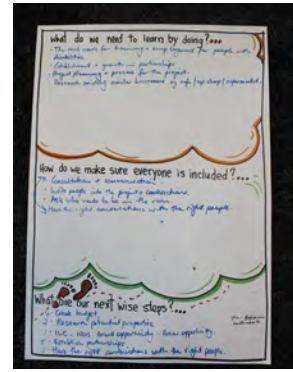 what do we need to learn by doing?...
- The real needs for training + employment for people with
disabilities
- Establishment + growth in partnerships.
- Project planning + process for the project.
- Research existing similar businesses eg cafe / op shop / supermarket.
How do we make sure everyone is included?...
Consultation + communication.
- Invite people into the project + conversations.
- Ask who needs to be in the room.
- Have the right conversations with the right people.
What are our next wise steps?...
- Create budget.
- Research potential properties.
- opportunity - opportunity.
- Establish partnerships.
- Have the right conversations with the right people.